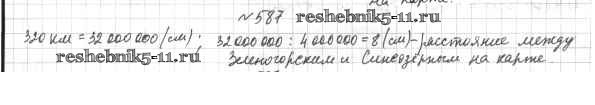 на карте.
№587 reshebnik5-11.ru
320 км = 32 000 000 (см); 32 000 000 : 4 000 000 = 8 (см) – расстояние между
reshebnik5-11.ru Зеленогорским и Синеозёрным на карте.